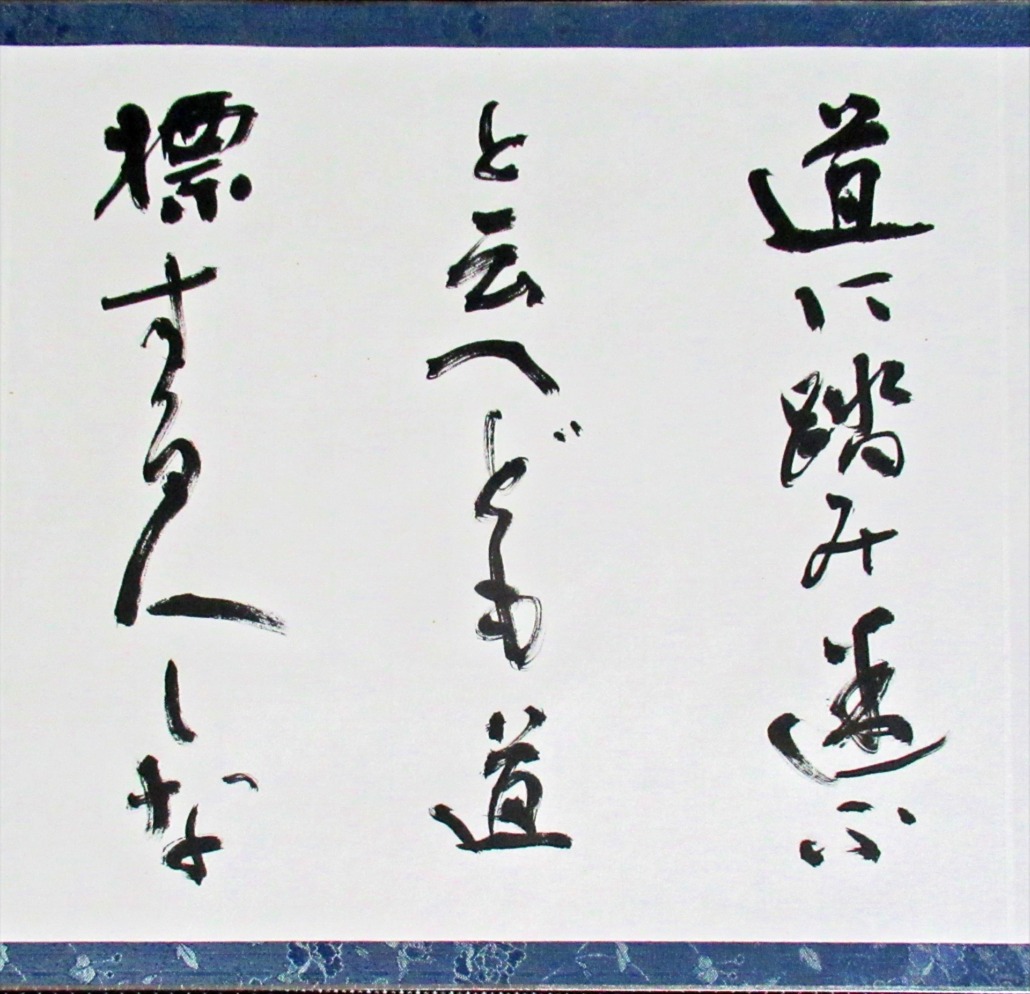 道に踏み迷ふ
と云へども道
標する人しな